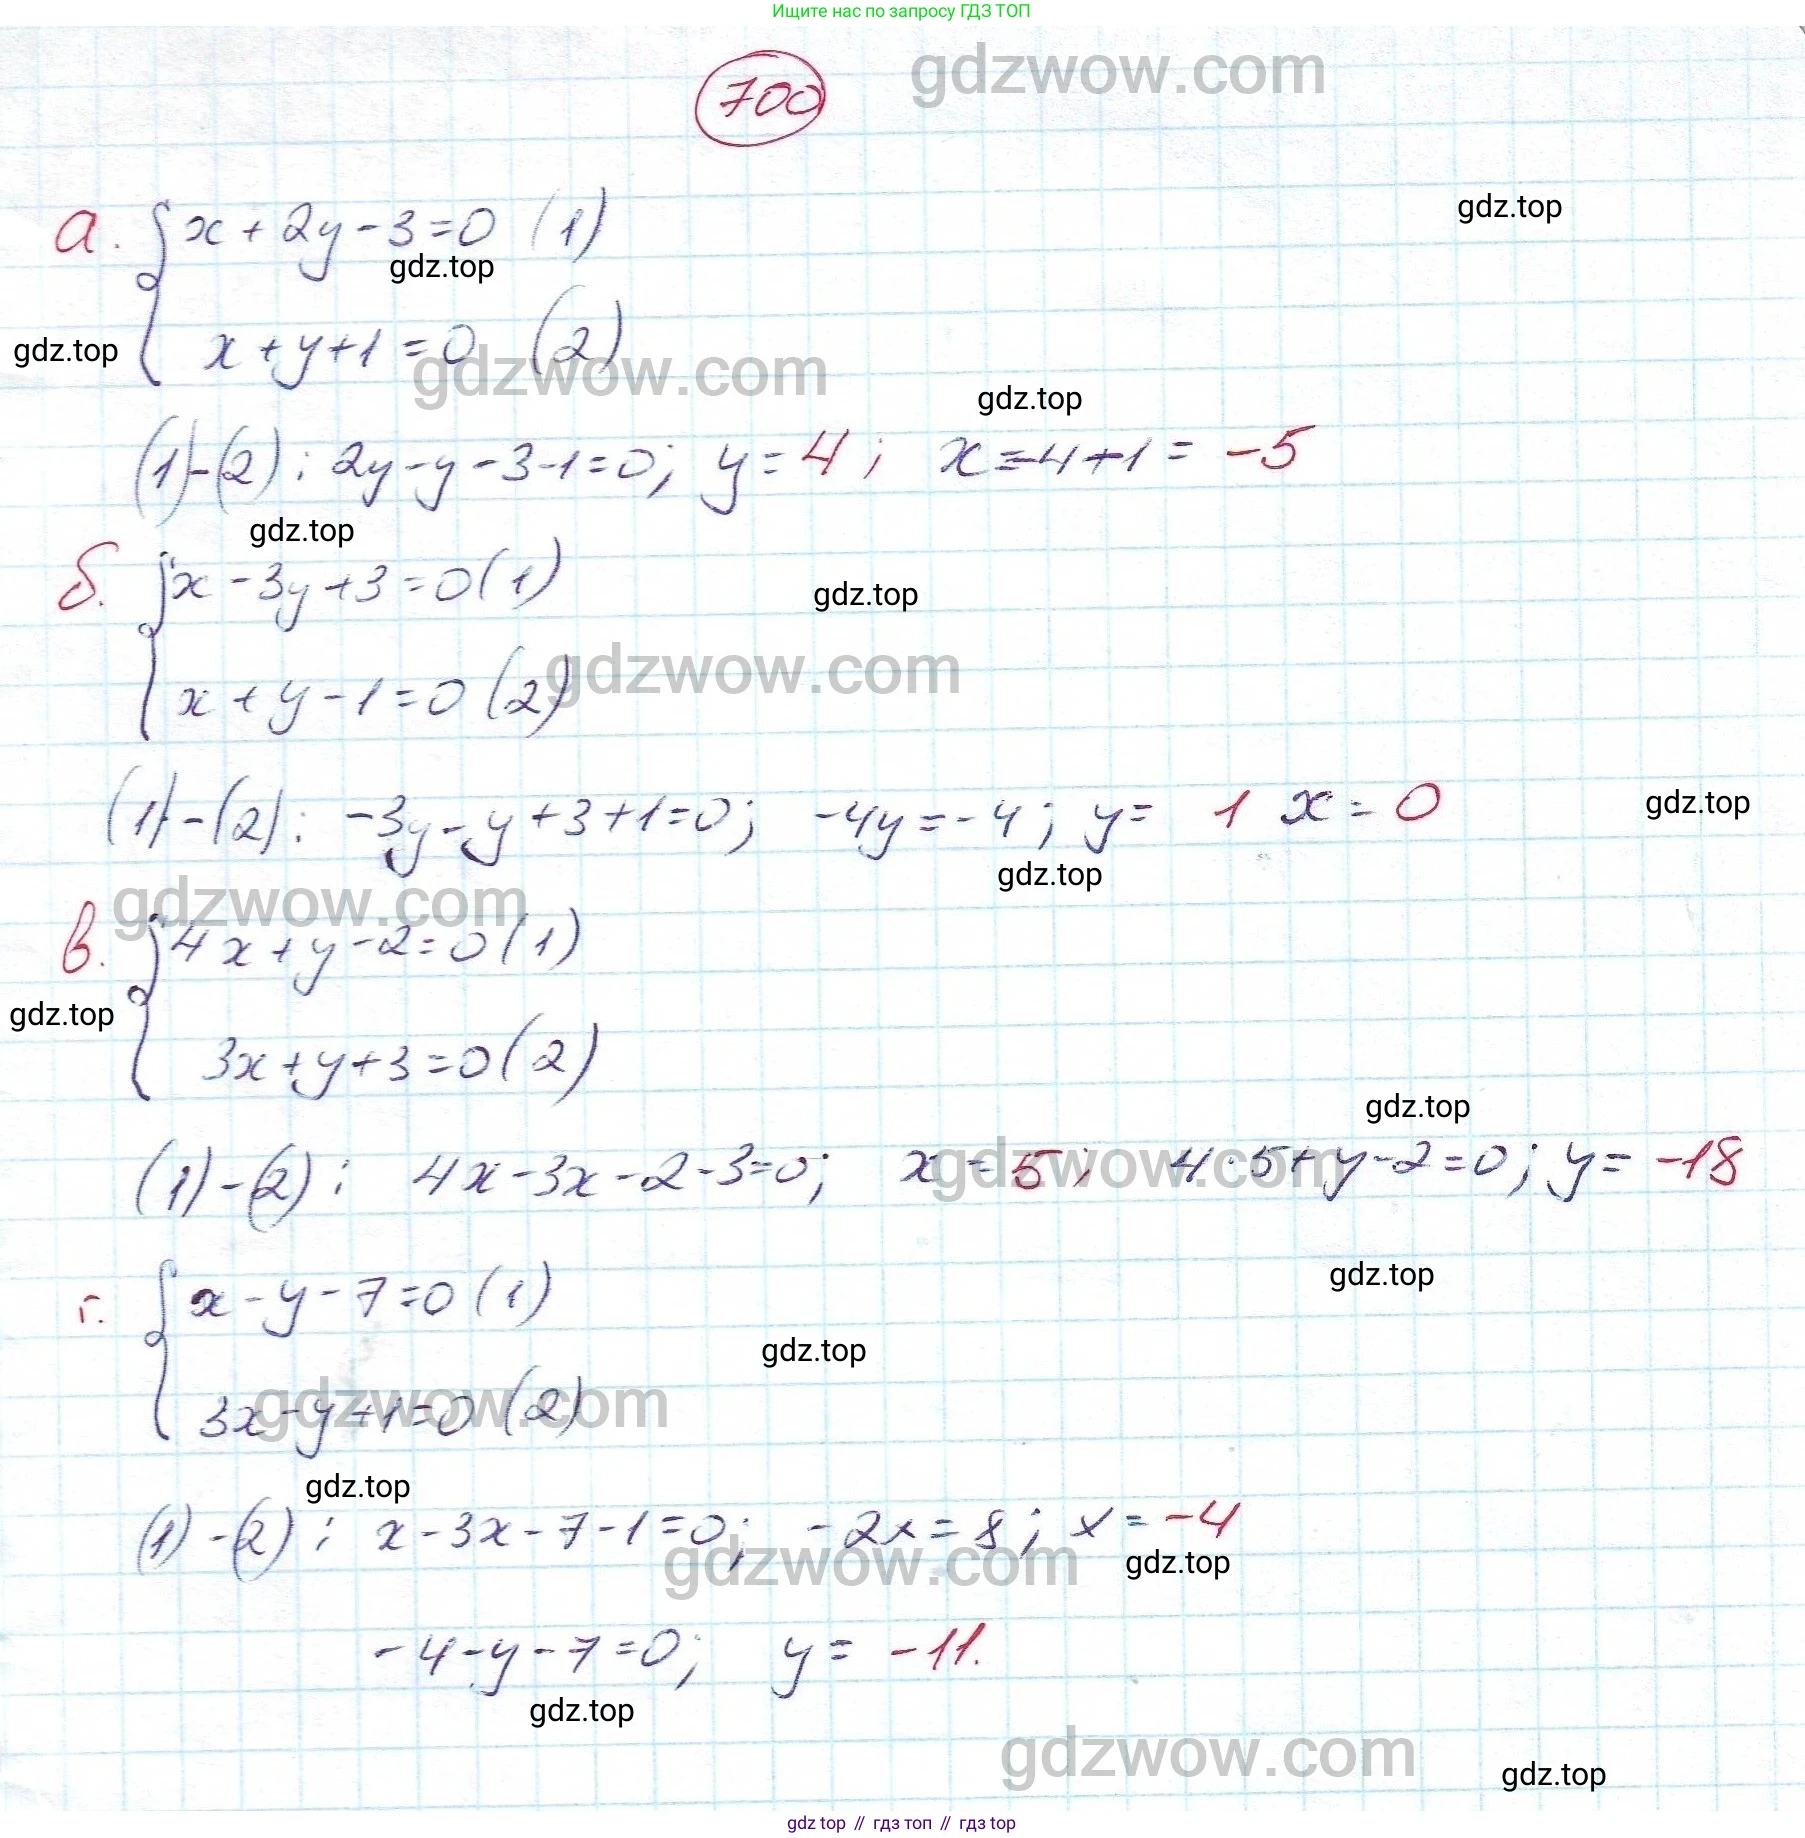 Ищите нас по запросу ГДЗ ТОП
gdzwow.com
700
gdz.top
а. { x + 2y - 3 = 0 (1)
gdz.top
gdz.top
x + y + 1 = 0 (2)
gdzwow.com
gdz.top
(1) - (2) : 2y - y - 3 - 1 = 0; y = 4; x = -4 + 1 = -5
gdz.top
б. { x - 3y + 3 = 0 (1)
gdz.top
gdzwow.com
x + y - 1 = 0 (2)
(1) - (2) : -3y - y + 3 + 1 = 0; -4y = -4; y = 1 x = 0
gdz.top
gdz.top
gdzwow.com
в. { 4x + y - 2 = 0 (1)
gdz.top
3x + y + 3 = 0 (2)
gdz.top
(1) - (2) : 4x - 3x - 2 - 3 = 0; x = 5; 4 · 5 + y - 2 = 0; y = -18
gdzwow.com
gdz.top
г. { x - y - 7 = 0 (1)
gdz.top
3x - y + 1 = 0 (2)
gdzwow.com
gdz.top
(1) - (2) : x - 3x - 7 - 1 = 0; -2x = 8; x = -4
gdzwow.com
gdz.top
-4 - y - 7 = 0; y = -11.
gdz.top
gdzwow.com
gdz.top
gdz top // гдз топ // гдз top